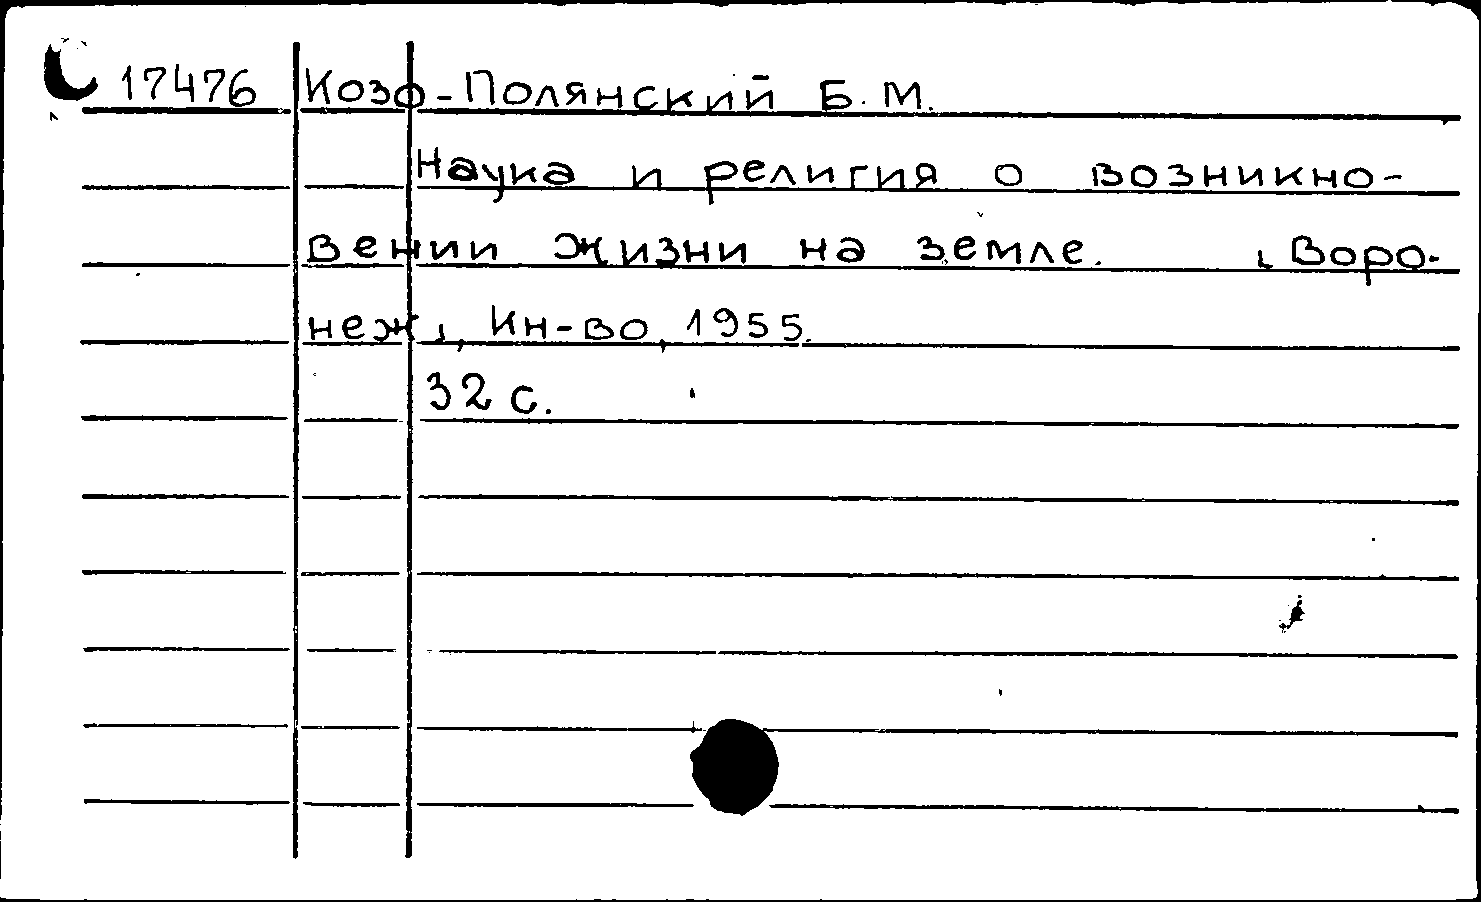 17476 Козо-Полянский Б.М.
Наука и религия о возникно-
вении жизни на земле. [Воро-
неж], Ин-во, 1955.
32 с.